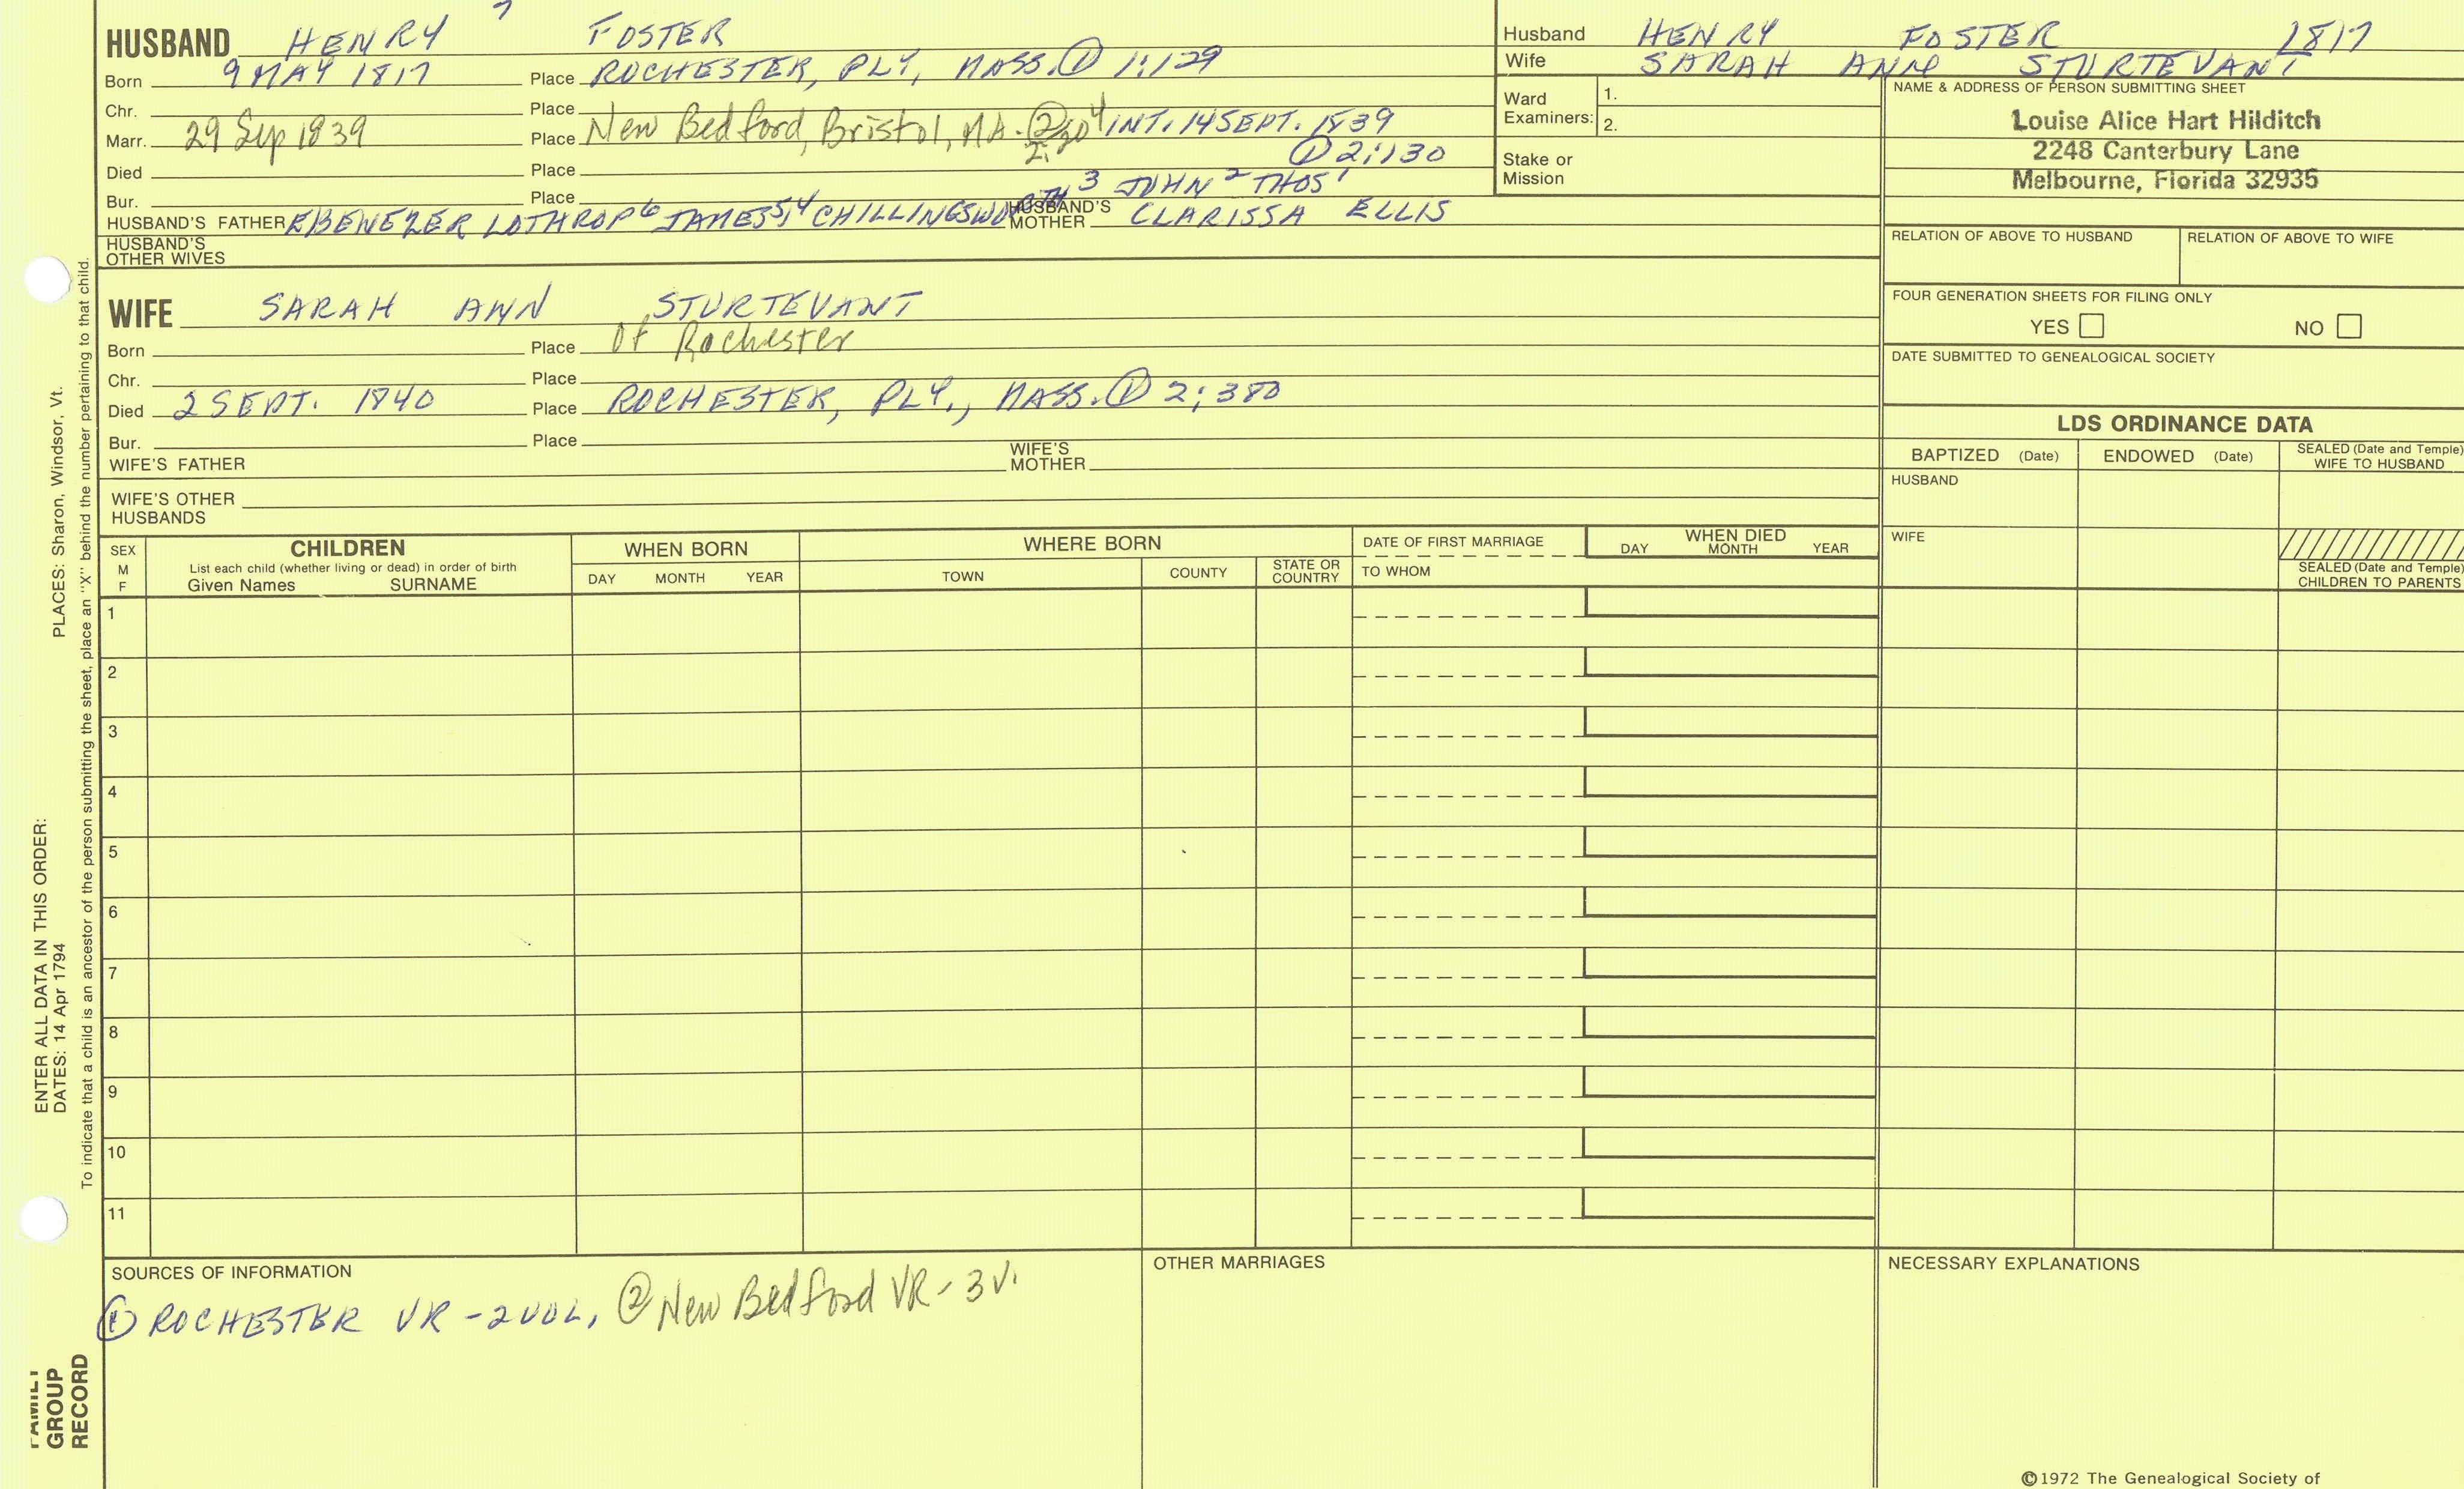 HUSBAND HENRY 7 FOSTER
Born 9 MAY 1817 Place ROCHESTER, PLY, MASS. ① 1:129
Chr. Place
Marr. 29 Sep 1839 Place New Bedford, Bristol, MA. ② 2: INT. 14 SEPT. 1839
① 2:130
Died Place
Bur. Place
HUSBAND'S FATHER EBENEZER LOTHROP 6 JAMES 5,4 CHILLINGSWORTH 3 JOHN 2 THOS 1
HUSBAND'S MOTHER CLARISSA ELLIS
HUSBAND'S OTHER WIVES
WIFE SARAH ANN STURTEVANT
Born Place of Rochester
Chr. Place
Died 2 SEPT. 1840 Place ROCHESTER, PLY., MASS. ① 2:380
Bur. Place
WIFE'S FATHER WIFE'S MOTHER
WIFE'S OTHER HUSBANDS
Husband HENRY FOSTER 1817
Wife SARAH ANN STURTEVANT
Ward Examiners: 1.
2.
Stake or Mission
NAME & ADDRESS OF PERSON SUBMITTING SHEET
Louise Alice Hart Hilditch
2248 Canterbury Lane
Melbourne, Florida 32935
RELATION OF ABOVE TO HUSBAND RELATION OF ABOVE TO WIFE
FOUR GENERATION SHEETS FOR FILING ONLY
YES NO
DATE SUBMITTED TO GENEALOGICAL SOCIETY
LDS ORDINANCE DATA
BAPTIZED (Date) ENDOWED (Date) SEALED (Date and Temple) WIFE TO HUSBAND
HUSBAND
WIFE
SEALED (Date and Temple) CHILDREN TO PARENTS
SEX M F
CHILDREN
List each child (whether living or dead) in order of birth
Given Names SURNAME
WHEN BORN
DAY MONTH YEAR
WHERE BORN
TOWN COUNTY STATE OR COUNTRY
DATE OF FIRST MARRIAGE
TO WHOM
WHEN DIED
DAY MONTH YEAR
1
2
3
4
5
6
7
8
9
10
11
SOURCES OF INFORMATION
① ROCHESTER VR - 2 VOL, ② New Bedford VR - 3 V.
OTHER MARRIAGES
NECESSARY EXPLANATIONS
©1972 The Genealogical Society of
PLACES: Sharon, Windsor, Vt.
ENTER ALL DATA IN THIS ORDER:
DATES: 14 Apr 1794
To indicate that a child is an ancestor of the person submitting the sheet, place an "X" behind the number pertaining to that child.
FAMILY
GROUP
RECORD